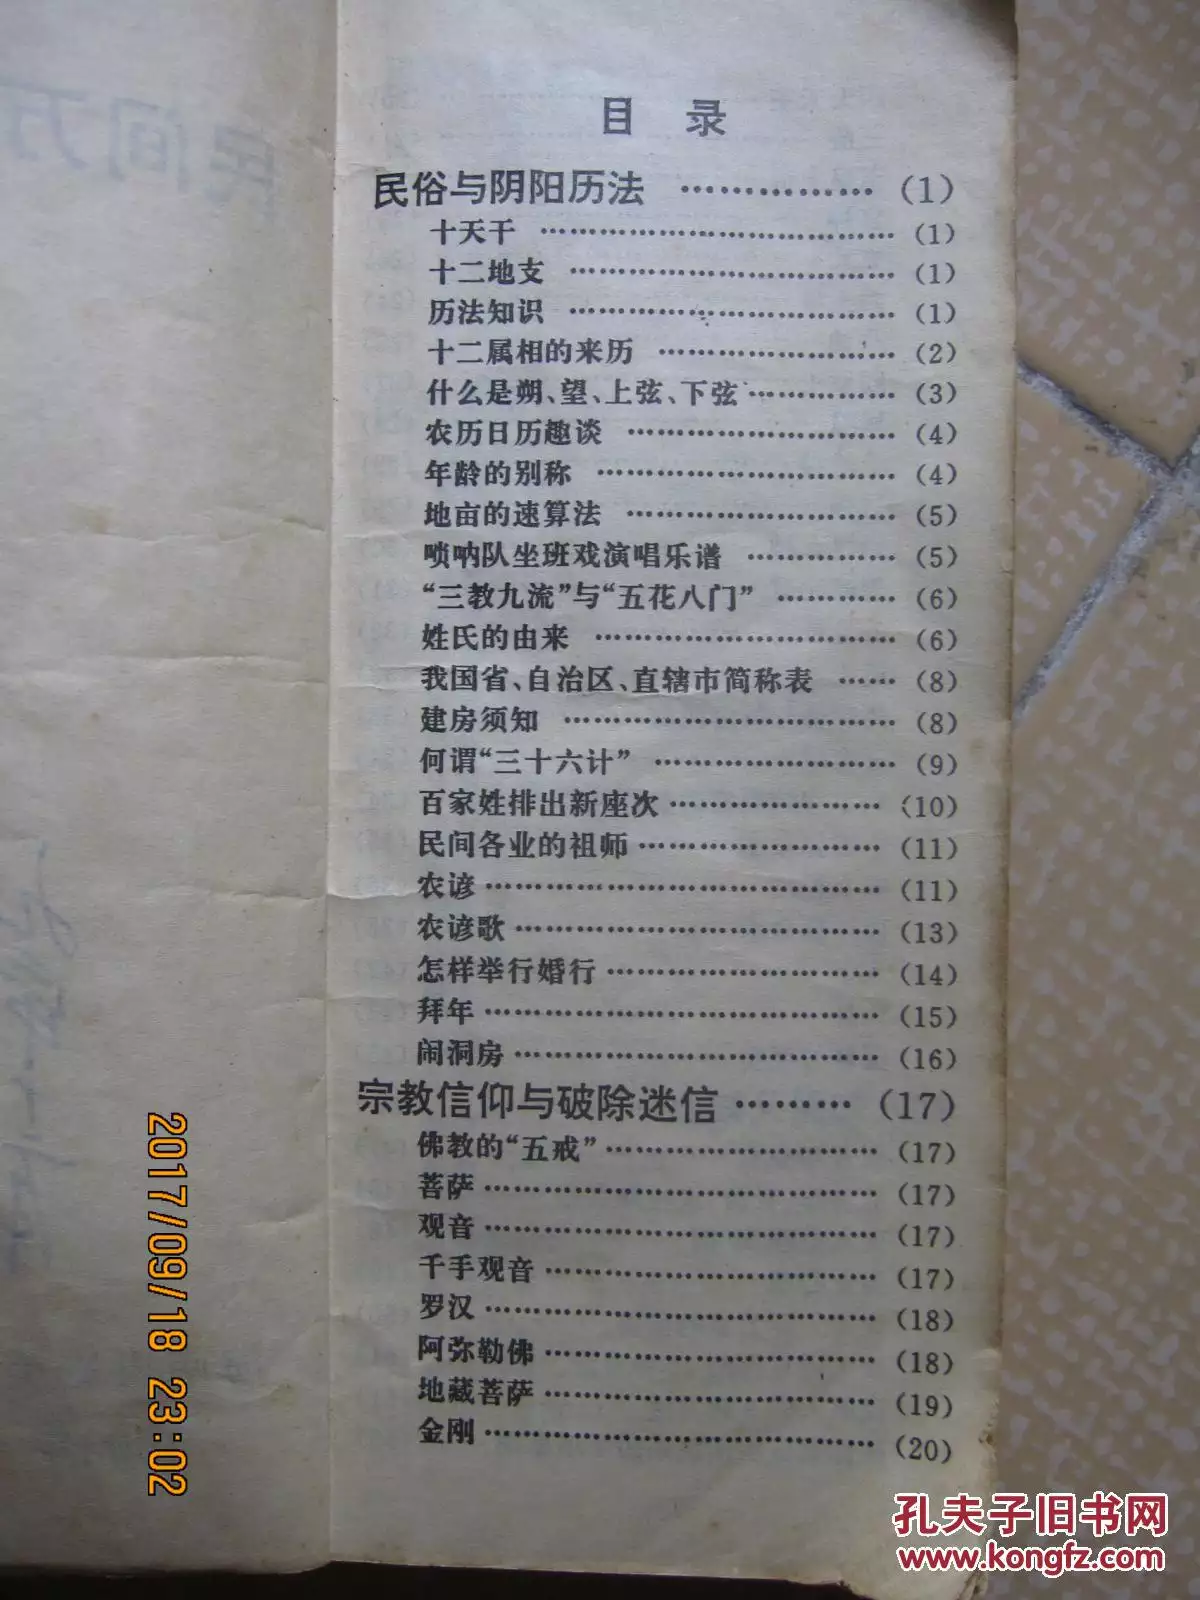 目 录
民俗与阴阳历法 ……………… (1)
十天干 ……………………………… (1)
十二地支 …………………………… (1)
历法知识 …………………………… (1)
十二属相的来历 …………………… (2)
什么是朔、望、上弦、下弦 …………… (3)
农历日历趣谈 ……………………… (4)
年龄的别称 ………………………… (4)
地亩的速算法 ……………………… (5)
唢呐队坐班戏演唱乐谱 …………… (5)
“三教九流”与“五花八门” ………… (6)
姓氏的由来 ………………………… (6)
我国省、自治区、直辖市简称表 …… (8)
建房须知 …………………………… (8)
何谓“三十六计” …………………… (9)
百家姓排出新座次 ………………… (10)
民间各业的祖师 …………………… (11)
农谚 ………………………………… (11)
农谚歌 ……………………………… (13)
怎样举行婚行 ……………………… (14)
拜年 ………………………………… (15)
闹洞房 ……………………………… (16)
宗教信仰与破除迷信 ……… (17)
佛教的“五戒” ……………………… (17)
菩萨 ………………………………… (17)
观音 ………………………………… (17)
千手观音 …………………………… (17)
罗汉 ………………………………… (18)
阿弥勒佛 …………………………… (18)
地藏菩萨 …………………………… (19)
金刚 ………………………………… (20)
2017/09/18 23:02
孔夫子旧书网
www.kongfz.com